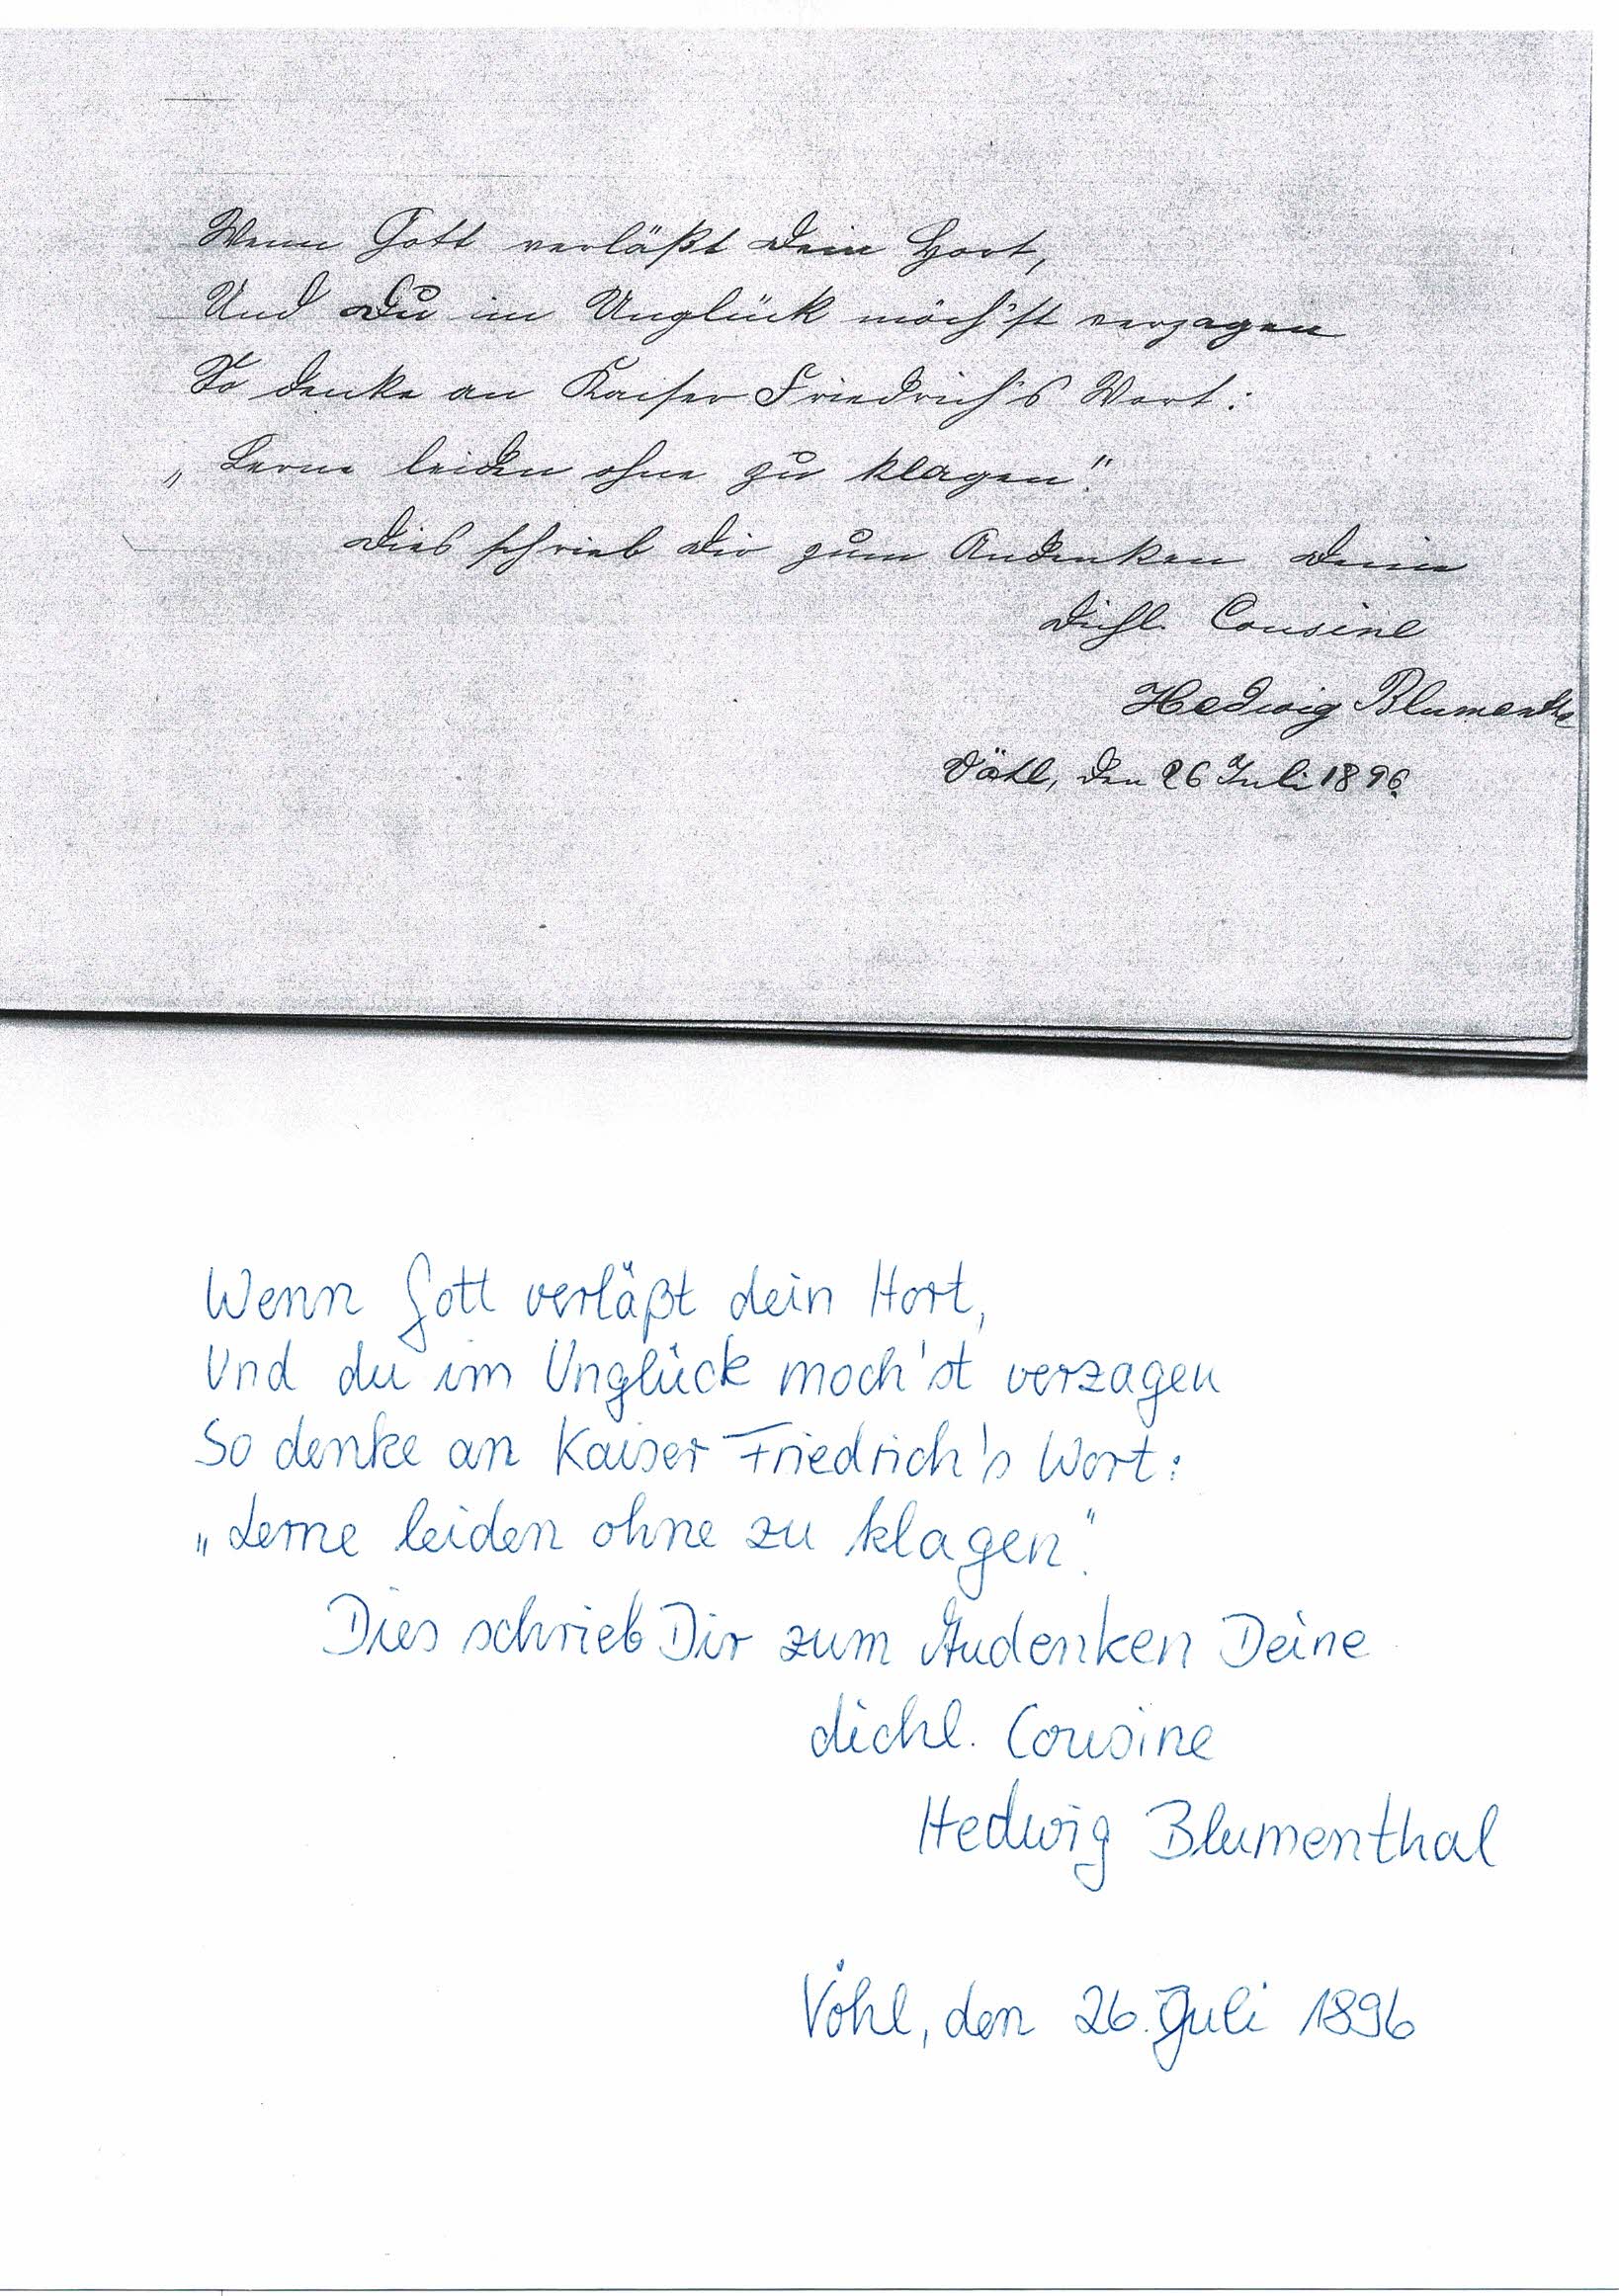 Wenn Gott verläßt dein Hort,
Und Du im Unglück möch'st verzagen
So denke an Kaiser Friedrich's Wort:
„Lerne leiden ohne zu klagen."
Dies schrieb Dir zum Andenken Deine
Dichl. Cousine
Hedwig Blumentha
Vöhl, den 26 Juli 1896.
Wenn Gott verläßt dein Hort,
Und du im Unglück moch'st verzagen
So denke an Kaiser Friedrich's Wort:
„Lerne leiden ohne zu klagen".
Dies schrieb Dir zum Andenken Deine
dichl. Cousine
Hedwig Blumenthal
Vöhl, den 26. Juli 1896